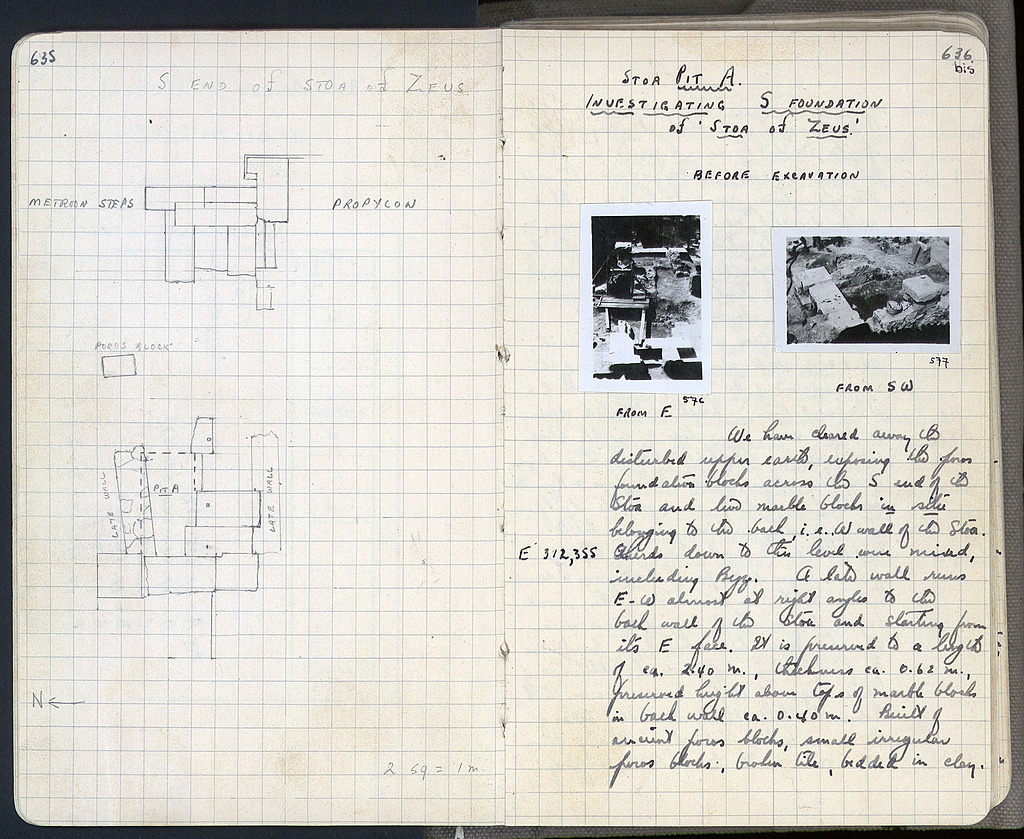 635
S END of STOA of ZEUS
METROON STEPS
PROPYLON
POROS BLOCK
LATE WALL
PIT A
LATE WALL
N
2 sq = 1 m.
636
bis
STOA PIT A.
INVESTIGATING S FOUNDATION
of 'STOA of ZEUS.'
BEFORE EXCAVATION
577
FROM SW
576
FROM E
We have cleared away the
disturbed upper earth, exposing the poros
foundation blocks across the S end of the
Stoa and two marble blocks in situ
belonging to the back, i.e. W wall of the Stoa.
E 312,355 Sherds down to this level were mixed,
including Byz. A late wall runs
E-W almost at right angles to the
back wall of the Stoa and starting from
its E face. It is preserved to a length
of ca. 2.40 m., thickness ca. 0.62 m.,
preserved height above tops of marble blocks
in back wall ca. 0.40 m. Built of
ancient poros blocks, small irregular
poros blocks, broken tile, bedded in clay.